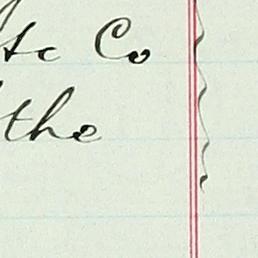 &c Co
the